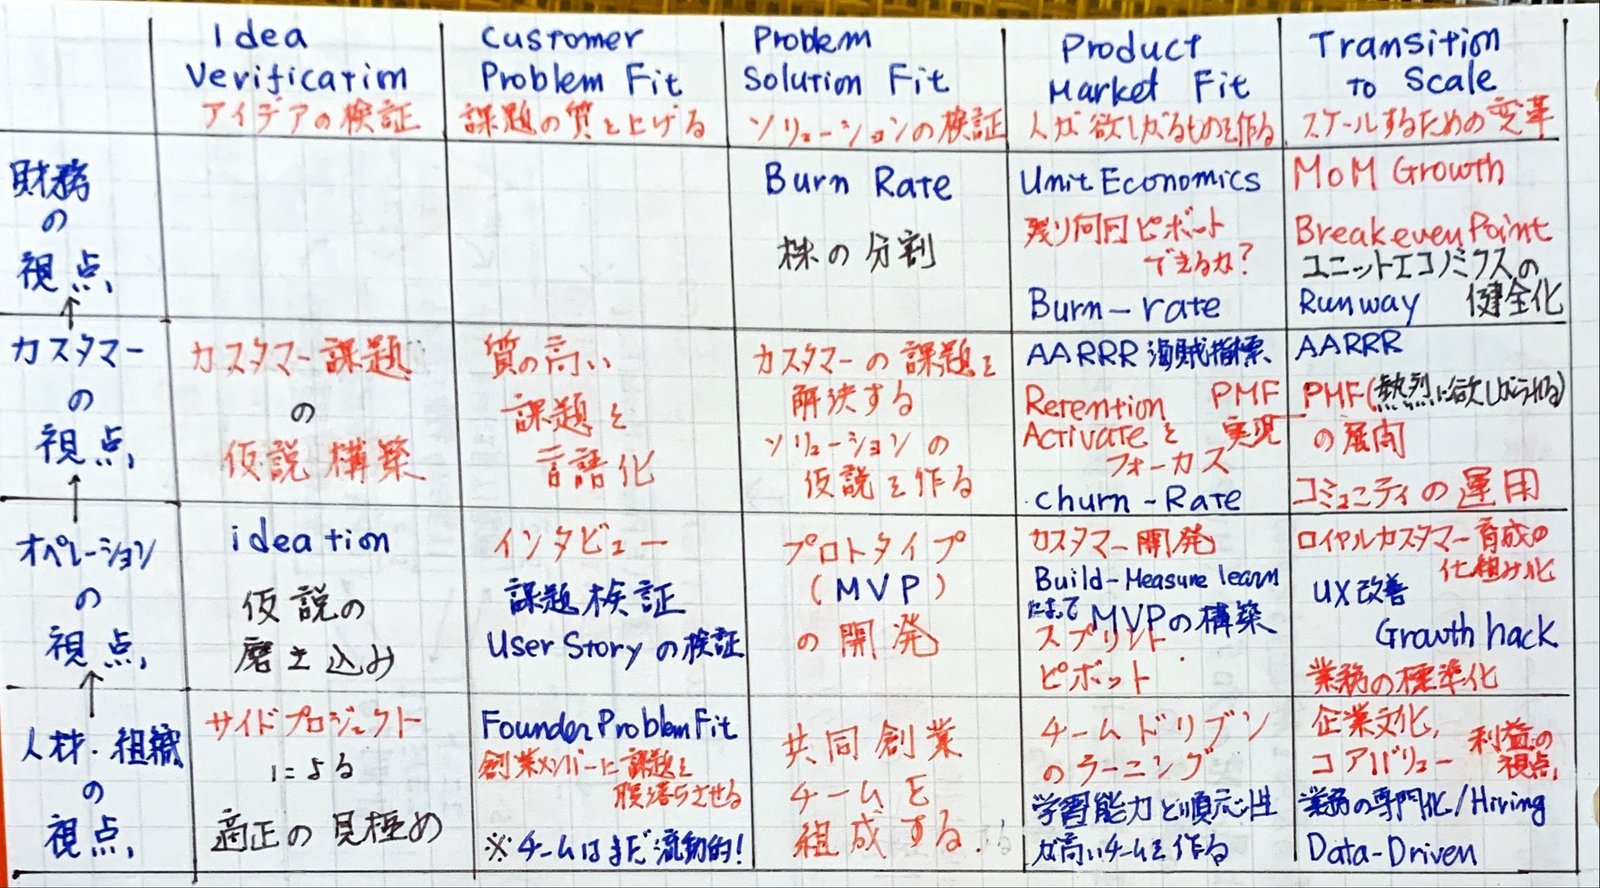 Idea
Verification
アイデアの検証
Customer
Problem Fit
課題の質を上げる
Problem
Solution Fit
ソリューションの検証
Product
Market Fit
人が欲しがるものを作る
Transition
To Scale
スケールするための変革
財務
の
視点
Burn Rate
株の分割
Unit Economics
残り何回ピボット
できるか?
Burn-rate
MoM Growth
Breakeven Point
ユニットエコノミクスの
Runway 健全化
カスタマー
の
視点
カスタマー課題
の
仮説構築
質の高い
課題を
言語化
カスタマーの課題を
解決する
ソリューションの
仮説を作る
AARRR 海賊指標
Retention PMF
Activateを 実現
フォーカス
churn-Rate
AARRR
PMF(熱烈に欲しがられる)
の展開
コミュニティの運用
オペレーション
の
視点
ideation
仮説の
磨き込み
インタビュー
課題検証
User Storyの検証
プロトタイプ
(MVP)
の開発
カスタマー開発
Build-Measure learn
によって MVPの構築
スプリント
ピボット
ロイヤルカスタマー育成の
仕組み化
UX改善
Growth hack
業務の標準化
人材・組織
の
視点
サイドプロジェクト
による
適正の見極め
Founder Problem Fit
創業メンバーに課題を
腹落ちさせる
※チームはまだ流動的!
共同創業
チームを
組成する.
チームドリブン
のラーニング
学習能力と順応性
が高いチームを作る
企業文化,
コアバリュー
利益の
視点
業務の専門化/Hiring
Data-Driven